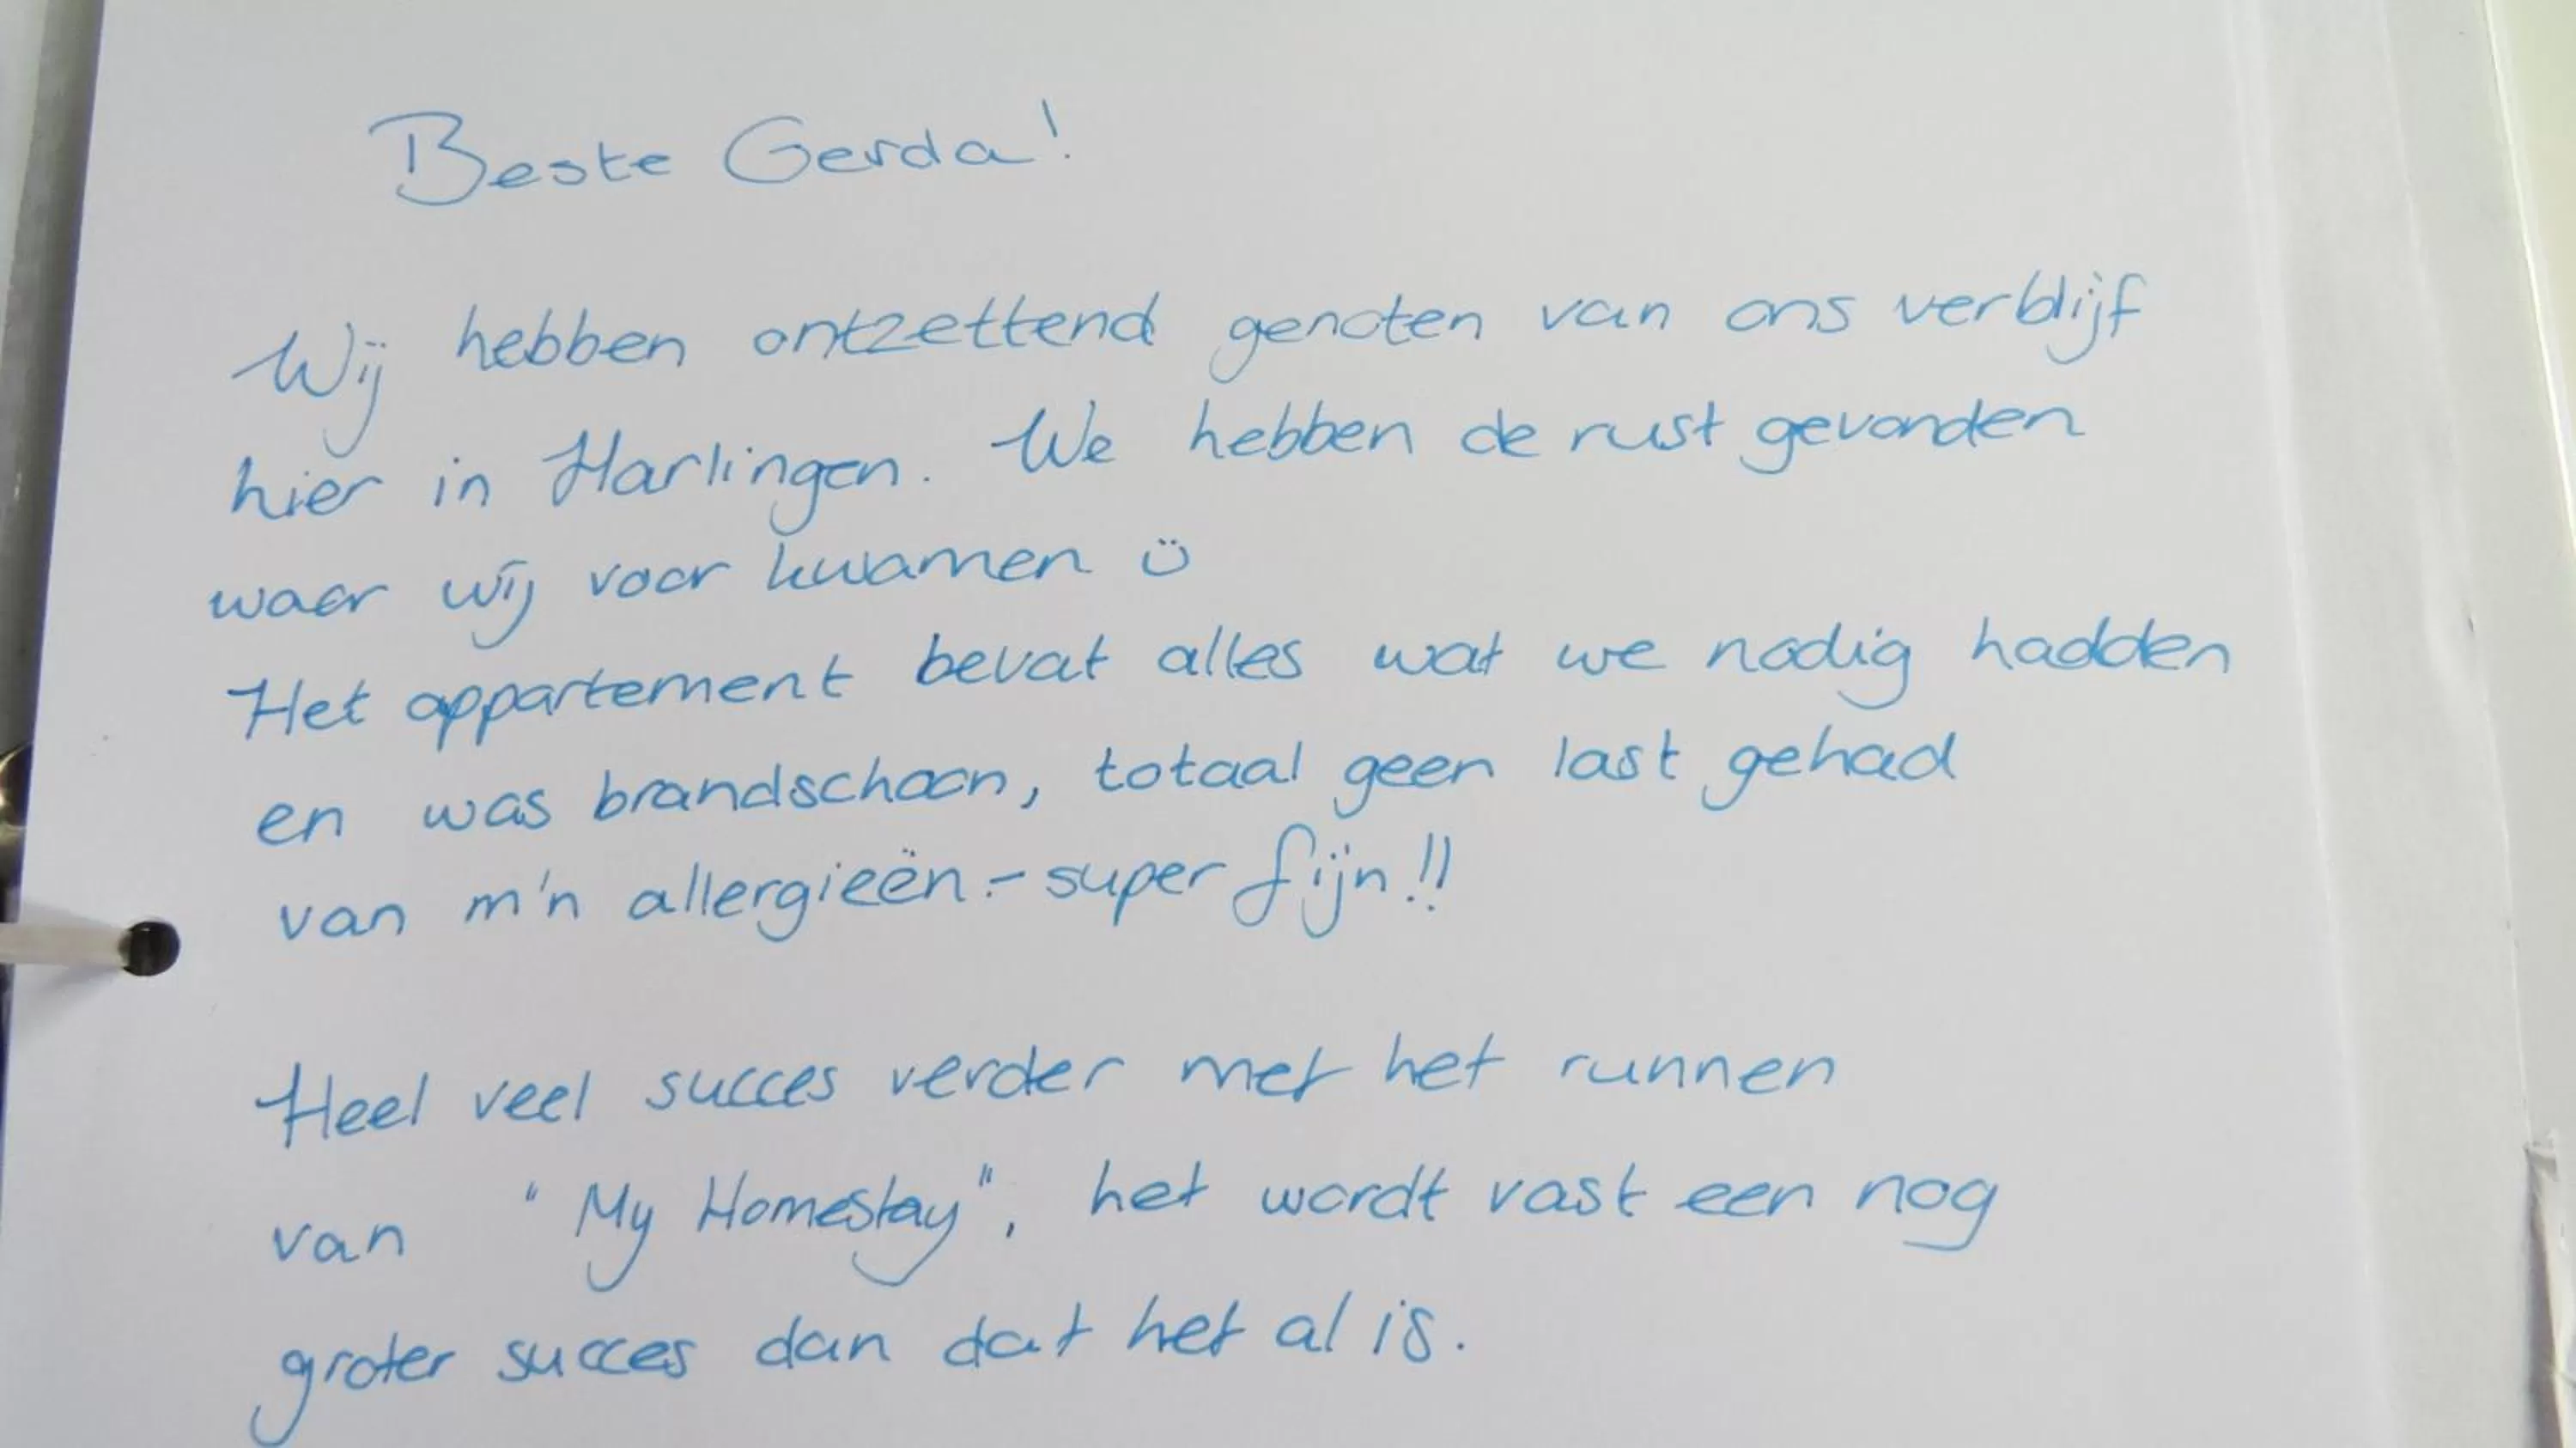 Beste Gerda!
Wij hebben ontzettend genoten van ons verblijf
hier in Harlingen. We hebben de rust gevonden
waar wij voor kwamen ü
Het appartement bevat alles wat we nodig hadden
en was brandschoon, totaal geen last gehad
van m'n allergieën - super fijn!!
Heel veel succes verder met het runnen
van "My Homestay", het wordt vast een nog
groter succes dan dat het al is.